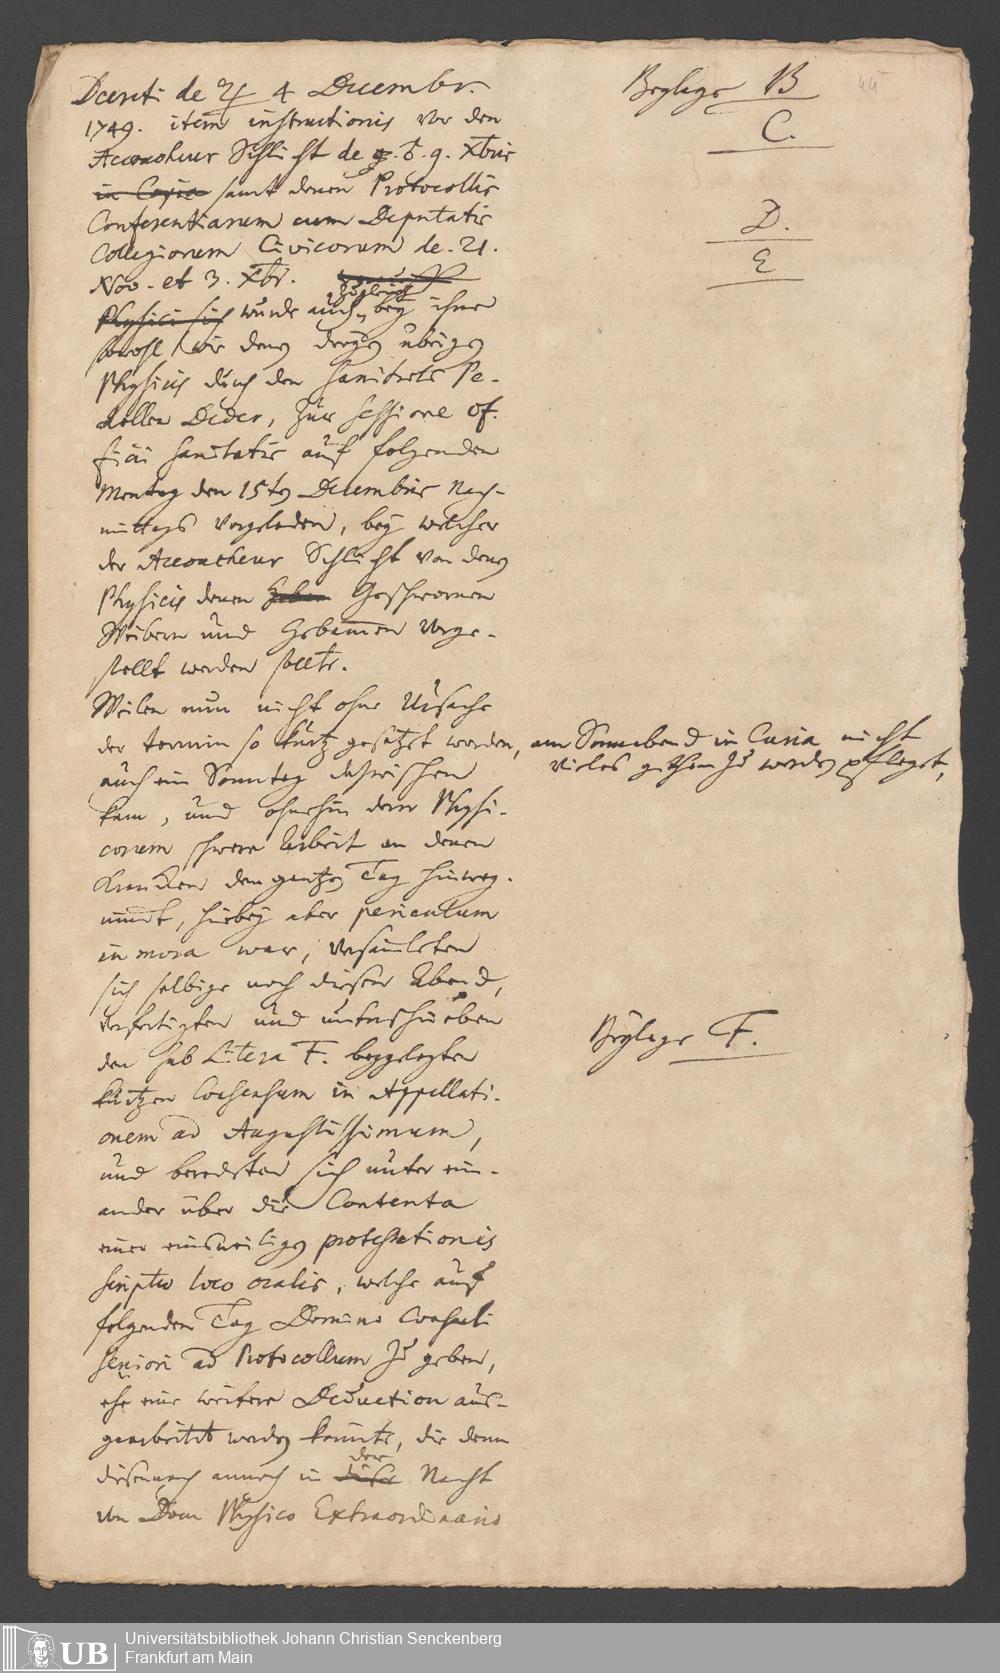 Decreti de ♃ 4 Decembr.
1749. item instructionis vor den
Accoucheur Schlicht de 9. Xbris
in Copia samt denen Protocollis
Conferentiarum cum Deputatis
Collegiorum Civicorum de 21.
Nov. et 3. Xbr.
Physici sich wurde auch zugleich bey ihnen
sowohl wie denen übrigen
Physicis durch den Sanitäts Pe-
dellen Deder, zur Sessione of-
ficii Sanitatis auf folgenden
Montag den 15ten Decembris Nach-
mittags vorgeladen, bey welcher
der Accoucheur Schlicht von denen
Physicis denen Geschwornen
Weibern und Hebammen vorge-
stellt werden sollte.
Weilen nun nicht ohne Ursache
der termin so kurtz gesetzet worden, am Sonnabend in Curia nicht
vieles gethan zu werden pfleget,
auch ein Sonntag dazwischen
kam, und ohnehin derer Physi-
corum schwere Arbeit an denen
Krancken den gantzen Tag hinweg-
nimmt, hierbey aber periculum
in mora war, versamleten
sich selbige noch diesen Abend,
verfertigten und unterschrieben
den sub Litera F. beygelegten
kurtzen Consensum in Appellati-
onem ad Augustissimum,
und beredeten sich unter ein-
ander über die Contenta
einer einsweiligen protestationis
scripto loco oralis, welche auf
folgenden Tag Domino Consuli
Seniori ad Protocollum zu geben,
ehe eine weitere Deduction aus-
gearbeitet werden könnte, die denn
diesennach annoch in der Nacht
von Dom Physico Extraordinario
Beylage B
C.
D.
E
Beylage F.
44
UB
Universitätsbibliothek Johann Christian Senckenberg
Frankfurt am Main